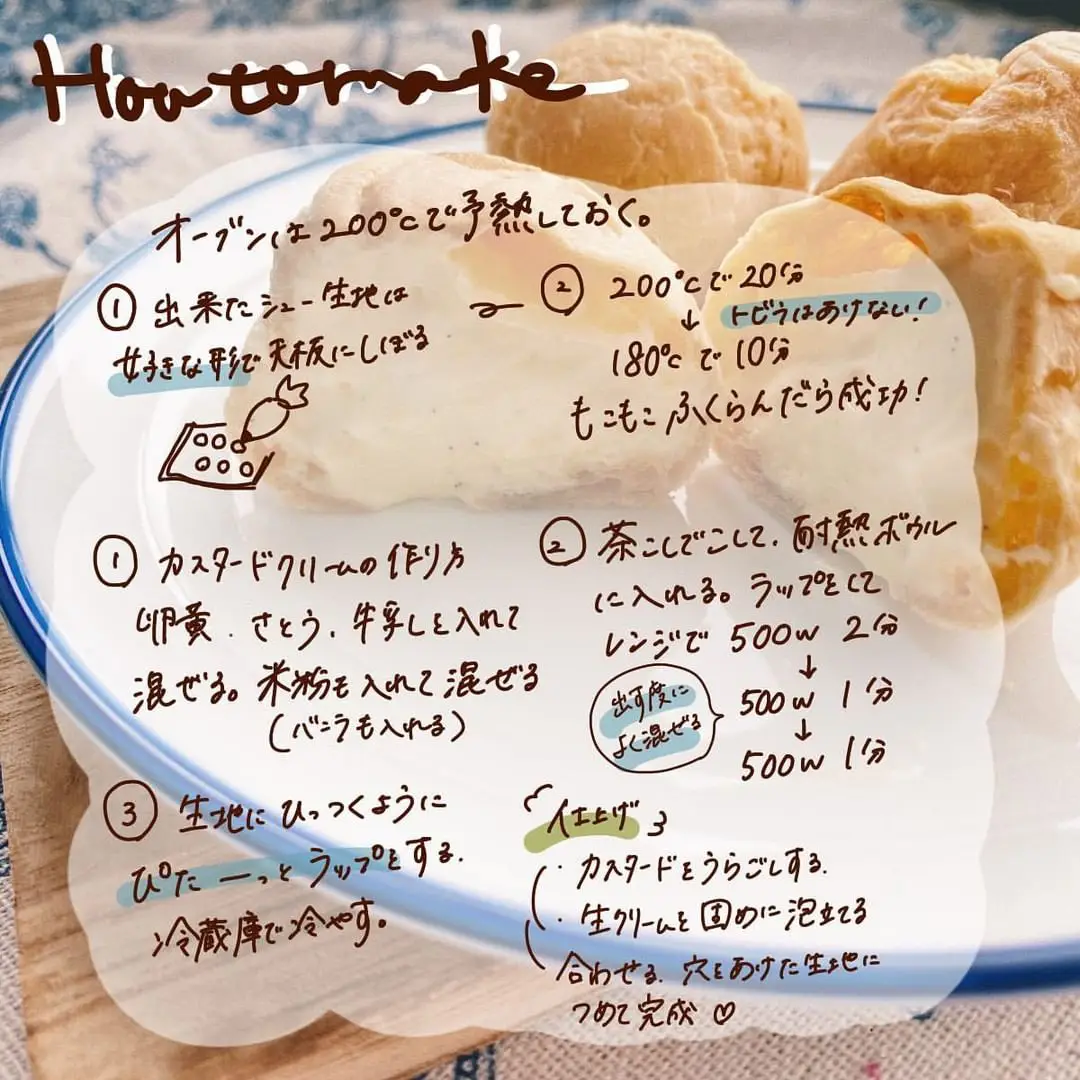 How to make
オーブンは200℃で予熱しておく。
① 出来たシュー生地は
好きな形で天板にしぼる
② 200℃で20分
↓ トビラはあけない!
180℃で10分
もこもこふくらんだら成功!
① カスタードクリームの作り方
卵黄、さとう、牛乳を入れて
混ぜる。米粉も入れて混ぜる
(バニラも入れる)
② 茶こしでこして、耐熱ボウル
に入れる。ラップをして
レンジで 500w 2分
↓
500w 1分
↓
500w 1分
出す度に
よく混ぜる
③ 生地にひっつくように
ぴたーっとラップをする。
冷蔵庫で冷やす。
仕上げ
・カスタードをうらごしする。
・生クリームを固めに泡立てる
合わせる。穴をあけた生地に
つめて完成♡